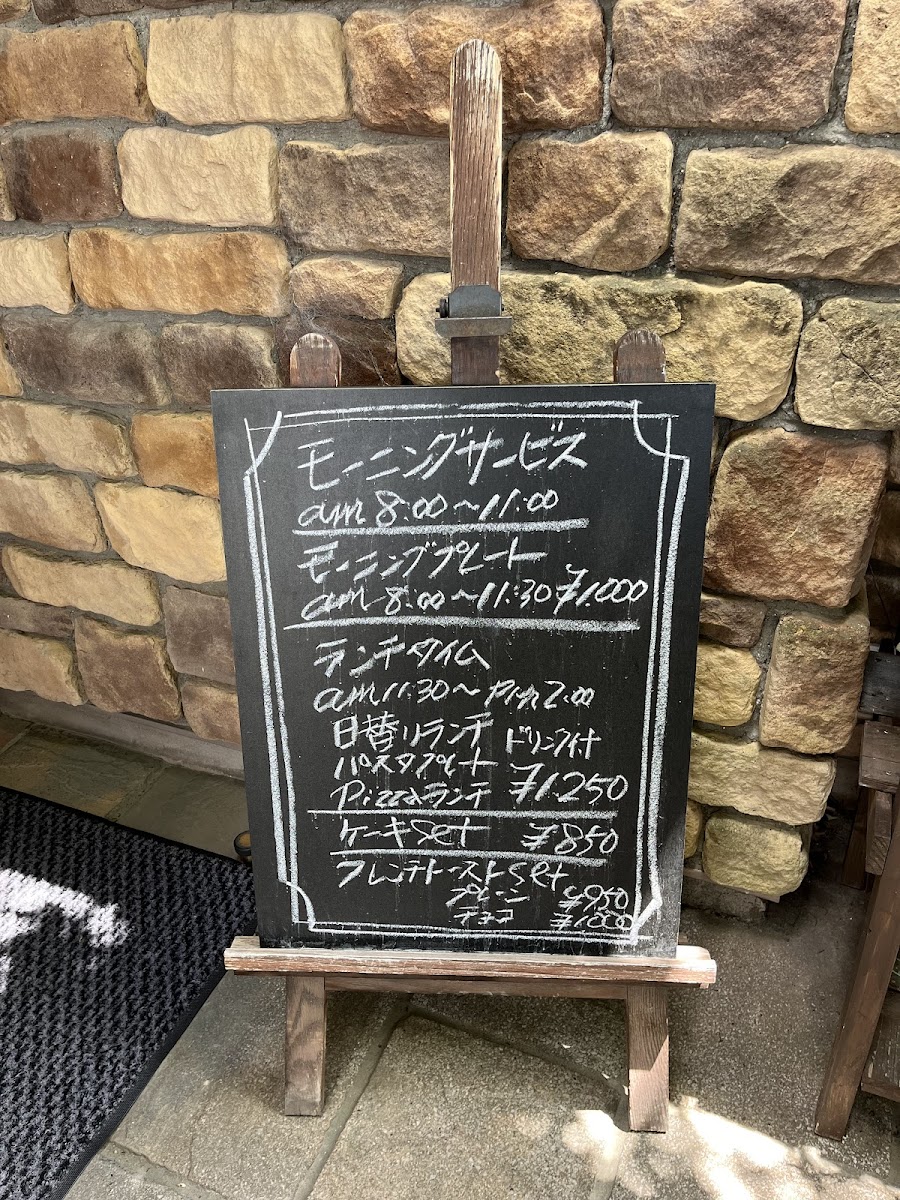 モーニングサービス
am 8:00〜11:00
モーニングプレート
am 8:00〜11:30 ¥1.000
ランチタイム
am 11:30〜Pm 2:00
日替りランチ ドリンク付
パスタプレート
Pizzaランチ ¥1.250
ケーキset ¥850
フレンチトーストset
プレーン ¥950
チョコ ¥1.000